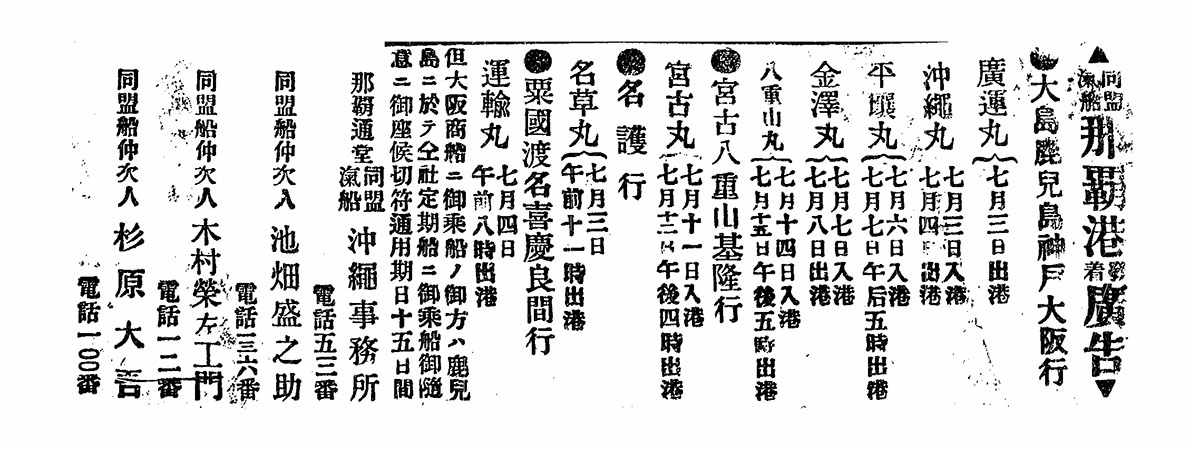 ▲同盟汽船那覇港発着廣告▼
●大島鹿兒島神戸大阪行
廣運丸 七月三日出港
沖繩丸 七月三日入港
七月四日出港
平壤丸 七月六日入港
七月七日午后五時出港
金澤丸 七月七日入港
七月八日出港
八重山丸 七月十四日入港
七月十五日午後五時出港
●宮古八重山基隆行
宮古丸 七月十一日入港
七月十二日午後四時出港
●名護行
名草丸 七月三日
午前十一時出港
●粟國渡名喜慶良間行
運輸丸 七月四日
午前八時出港
但大阪商船ニ御乘船ノ御方ハ鹿兒
島ニ於テ仝社定期船ニ御乘船御隨
意ニ御座候切符通用期日十五日間
那覇通堂 同盟汽船 沖繩事務所
電話五三番
同盟船仲次人 池畑盛之助
電話一三六番
同盟船仲次人 木村榮左工門
電話一二番
同盟船仲次人 杉原大吉
電話一〇〇番